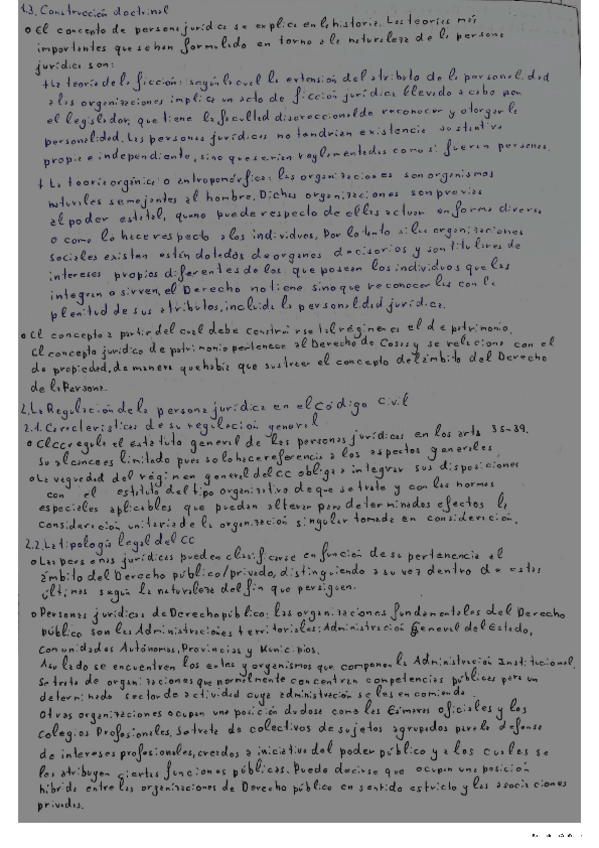 1.3. Construcción doctrinal
o El concepto de persona jurídica se explica en la historia. Las teorías más
importantes que se han formulado en torno a la naturaleza de la persona
jurídica son:
+ La teoría de la ficción: según la cual la extensión del atributo de la personalidad
a las organizaciones implica un acto de ficción jurídica llevado a cabo por
el legislador, que tiene la facultad discrecional de reconocer y otorgar la
personalidad. Las personas jurídicas no tendrían existencia sustantiva
propia e independiente, sino que serían reglamentadas como si fueran personas.
+ La teoría orgánica o antropomórfica: las organizaciones son organismos
naturales semejantes al hombre. Dichas organizaciones son previas
al poder estatal, que no puede respecto de ellas actuar en forma diversa
a como lo hace respecto a los individuos. Por lo tanto si las organizaciones
sociales existen están dotadas de organos decisorios y son titulares de
intereses propios diferentes de los que posean los individuos que las
integran o sirven, el Derecho no tiene sino que reconocerlas con la
plenitud de sus atributos, incluida la personalidad jurídica.
o El concepto a partir del cual debe construirse tal régimen es el de patrimonio.
El concepto jurídico de patrimonio pertenece al Derecho de Cosas y se relaciona con el
de propiedad, de manera que habría que sustraer el concepto del ámbito del Derecho
de la Persona.
2. La Regulación de la persona jurídica en el Código Civil
2.1. Características de su regulación general
o El CC regula el estatuto general de las personas jurídicas en los arts 35-39.
Su alcance es limitado pues solo hace referencia a los aspectos generales.
o La vaguedad del régimen general del CC obliga a integrar sus disposiciones
con el estatuto del tipo organizativo de que se trate y con las normas
especiales aplicables que puedan alterar para determinados efectos la
consideración unitaria de la organización singular tomada en consideración.
2.2. La tipología legal del CC
o Las personas jurídicas pueden clasificarse en función de su pertenencia al
ámbito del Derecho público/privado, distinguiendo a su vez dentro de estas
últimas según la naturaleza del fin que persiguen.
o Personas jurídicas de Derecho público: las organizaciones fundamentales del Derecho
público son las Administraciones territoriales: Administración General del Estado,
Comunidades Autónomas, Provincias y Municipios.
A su lado se encuentran los entes y organismos que componen la Administración Institucional.
Se trata de organizaciones que normalmente concentran competencias públicas para un
determinado sector de actividad cuya administración se les encomienda.
Otras organizaciones ocupan una posición dudosa como las Cámaras oficiales y los
Colegios Profesionales. Se trata de colectivos de sujetos agrupados para la defensa
de intereses profesionales, creados a iniciativa del poder público y a los cuales se
les atribuyen ciertas funciones públicas. Puede decirse que ocupan una posición
híbrida entre las organizaciones de Derecho público en sentido estricto y las asociaciones
privadas.